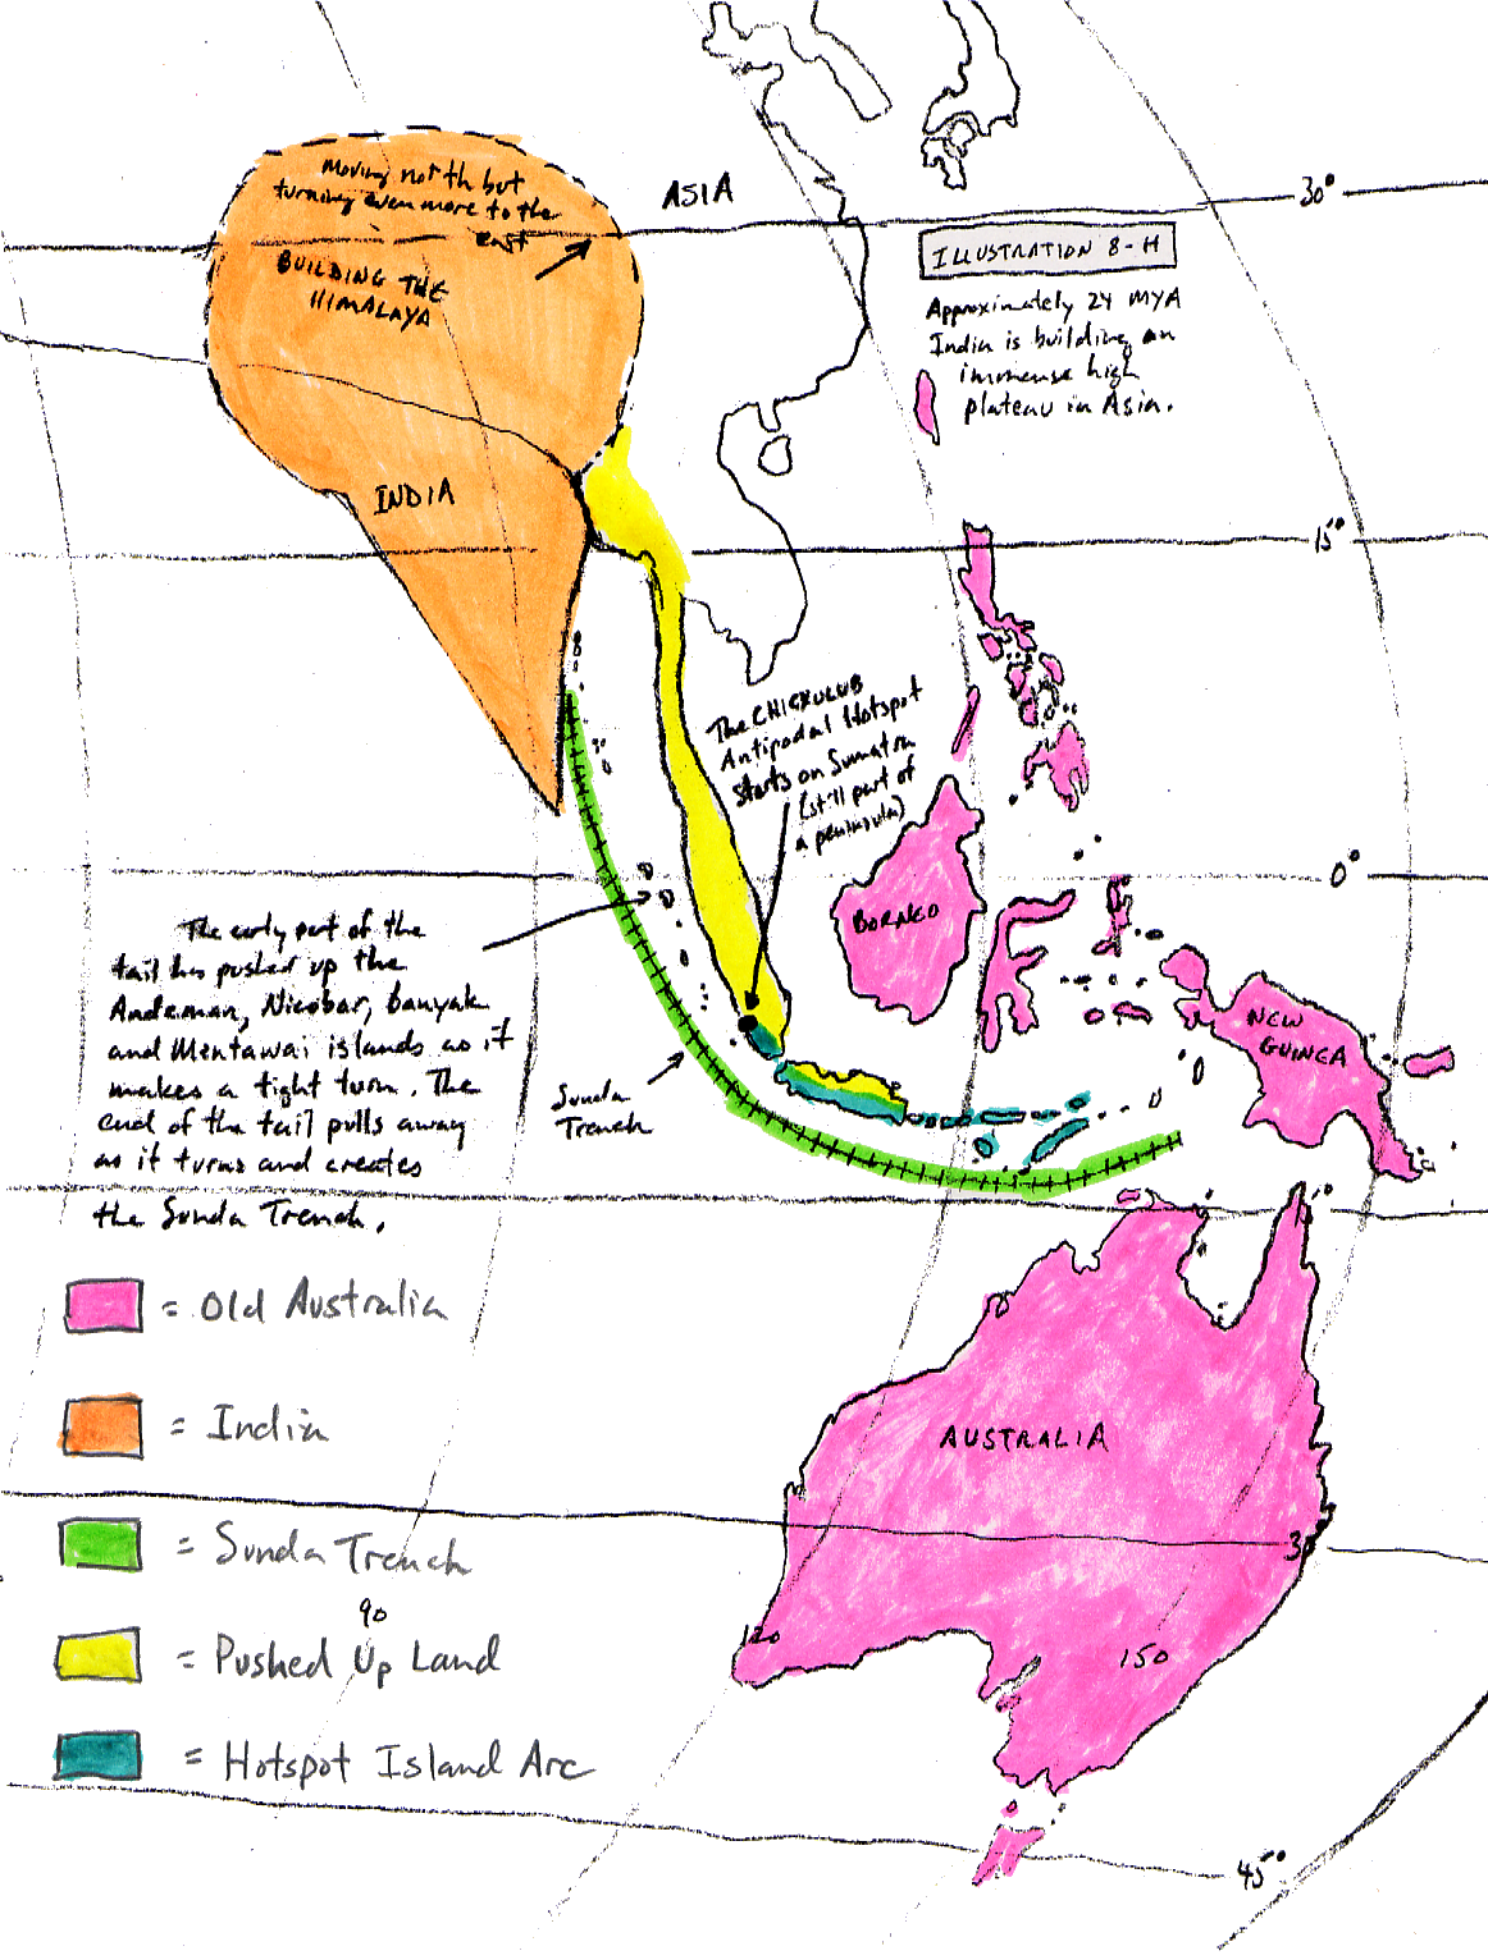 Moving north but
turning even more to the
east
BUILDING THE
HIMALAYA
INDIA
ASIA
30°
ILLUSTRATION 8-H
Approximately 24 MYA
India is building an
immense high
plateau in Asia.
15°
The CHICXULUB
Antipodal Hotspot
starts on Sumatra
(still part of
a peninsula)
0°
BORNEO
NEW
GUINEA
The early part of the
tail has pushed up the
Andaman, Nicobar, banyak
and Mentawai islands as it
makes a tight turn. The
end of the tail pulls away
as it turns and creates
the Sunda Trench.
Sunda
Trench
15°
= Old Australia
= India
= Sunda Trench
90
= Pushed Up Land
= Hotspot Island Arc
AUSTRALIA
30
120
150
45°